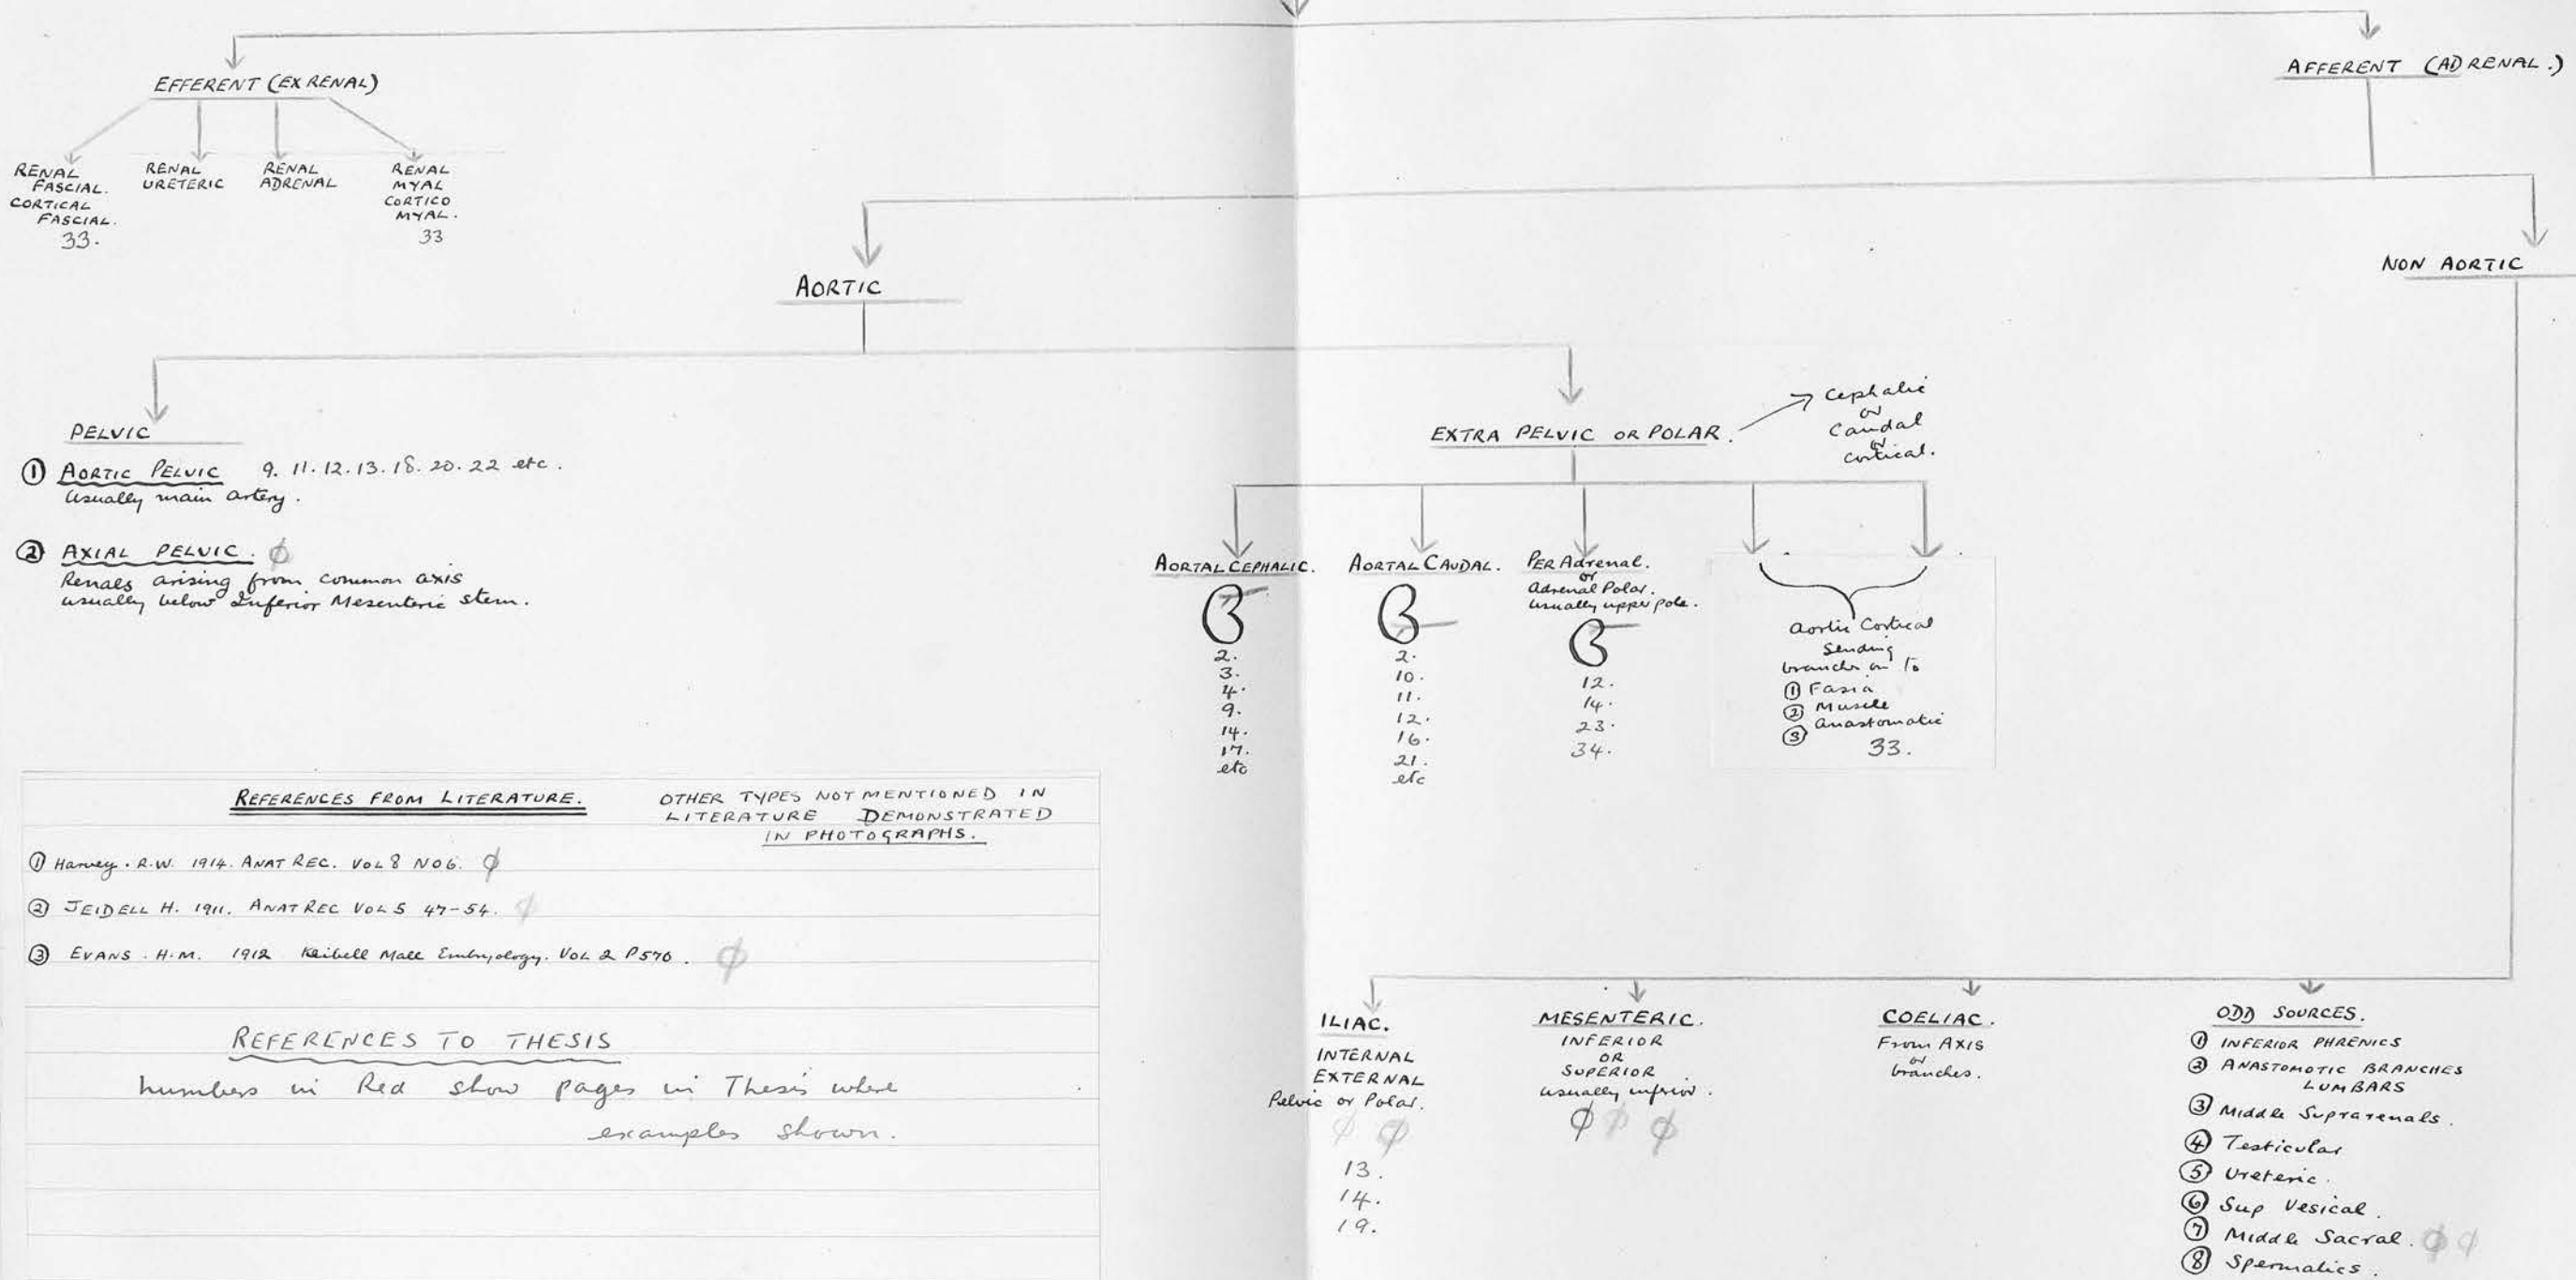 EFFERENT (EX RENAL)
AFFERENT (AD RENAL.)
RENAL
FASCIAL.
CORTICAL
FASCIAL.
33.
RENAL
URETERIC
RENAL
ADRENAL
RENAL
MYAL
CORTICO
MYAL.
33
AORTIC
NON AORTIC
PELVIC
① AORTIC PELVIC 9. 11. 12. 13. 18. 20. 22 etc.
Usually main artery.
② AXIAL PELVIC. ϕ
Renals arising from common axis
usually below Inferior Mesenteric stem.
EXTRA PELVIC OR POLAR.
Cephalic
or
Caudal
or
Cortical.
AORTAL CEPHALIC.
2.
3.
4.
9.
14.
17.
etc
AORTAL CAUDAL.
2.
10.
11.
12.
16.
21.
etc
PER Adrenal.
or
Adrenal Polar.
Usually upper pole.
12.
14.
23.
34.
Aortic Cortical
Sending
branches on to
① Fasia
② Muscle
③ Anastomatic
33.
REFERENCES FROM LITERATURE.
① Harvey. R.W. 1914. ANAT REC. VOL 8 NO 6. ϕ
② JEIDELL H. 1911. ANAT REC VOL 5 47-54. ϕ
③ EVANS. H.M. 1912 Keibell Mall Embryology. VOL 2 P570. ϕ
OTHER TYPES NOT MENTIONED IN
LITERATURE DEMONSTRATED
IN PHOTOGRAPHS.
REFERENCES TO THESIS
Numbers in Red show pages in Thesis where
examples shown.
ILIAC.
INTERNAL
EXTERNAL
Pelvic or Polar.
ϕ ϕ
13.
14.
19.
MESENTERIC.
INFERIOR
OR
SUPERIOR
usually inferior.
ϕ ϕ ϕ
COELIAC.
From AXIS
or
branches.
ODD SOURCES.
① INFERIOR PHRENICS
② ANASTOMOTIC BRANCHES
LUMBARS
③ Middle Suprarenals.
④ Testicular
⑤ Ureteric.
⑥ Sup Vesical.
⑦ Middle Sacral. ϕ ϕ
⑧ Spermatics.